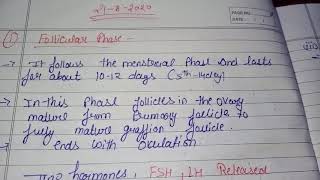 21-8-2020
PAGE NO.
DATE
① Follicular Phase -
→ It follows the menstrual Phase and lasts
for about 10-12 days (5th-14day)
→ In this Phase follicles in the ovary
mature from Primary follicle to
fully mature graffian follicle.
→ ends with Ovulation
hormones, FSH, LH Released